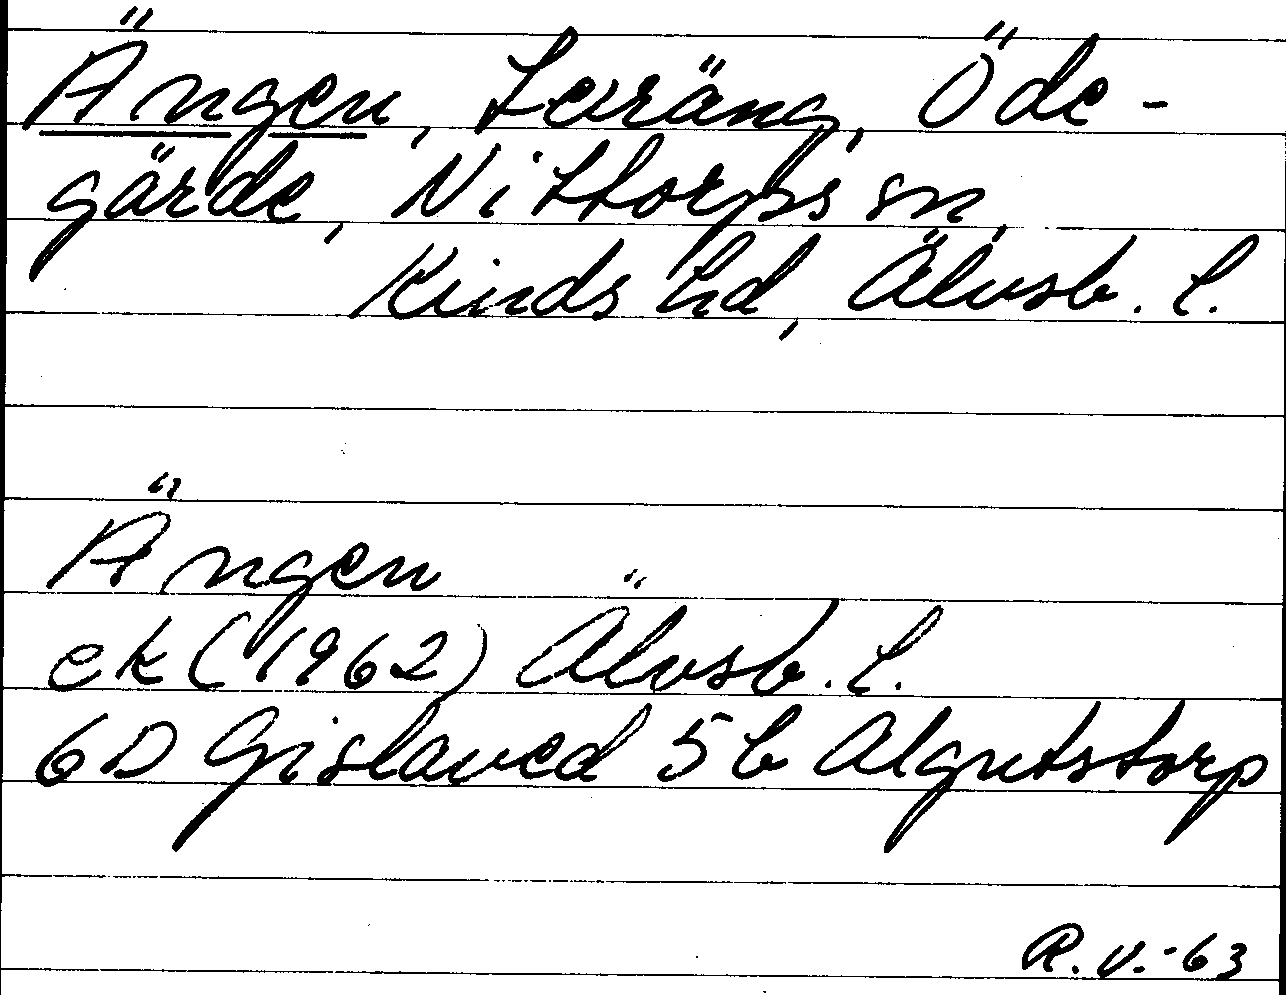 Ängen, Leräng, Öde-
gärde, Nittorps sn,
Kinds hd, Älvsb. l.
Ängen
ek (1962) Älvsb. l.
6D Gislaved 5b Algutstorp
R.V.-63